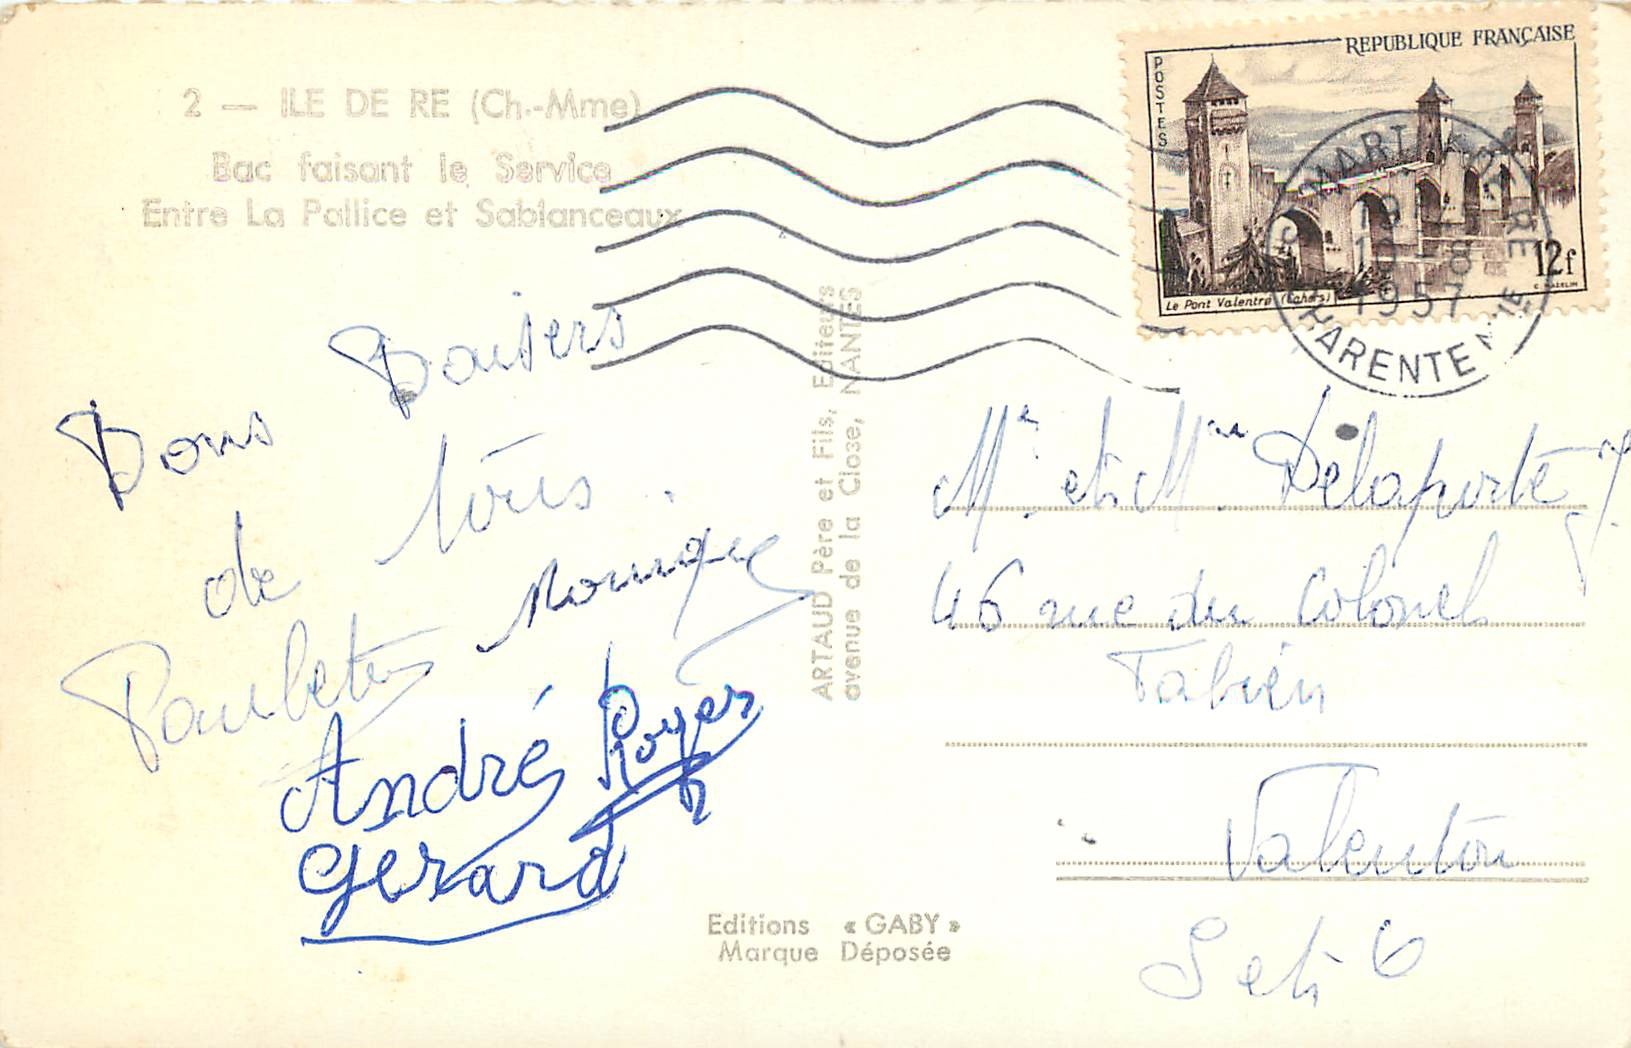 2 — ILE DE RE (Ch.-Mme)
Bac faisant le Service
Entre La Pallice et Sablanceaux
REPUBLIQUE FRANÇAISE
POSTES
12f
Le Pont Valentré (Cahors)
MARTIN DE RE
19 -8
1957
CHARENTE MME
Bons Baisers
de tous.
Paulette Monique
André Royer
Gérard
ARTAUD Père et Fils, Editeurs
avenue de la Close, NANTES
Mr et Mme Delaporte
46 rue du Colonel
Fabien
Valenton
S et O
Editions « GABY »
Marque Déposée